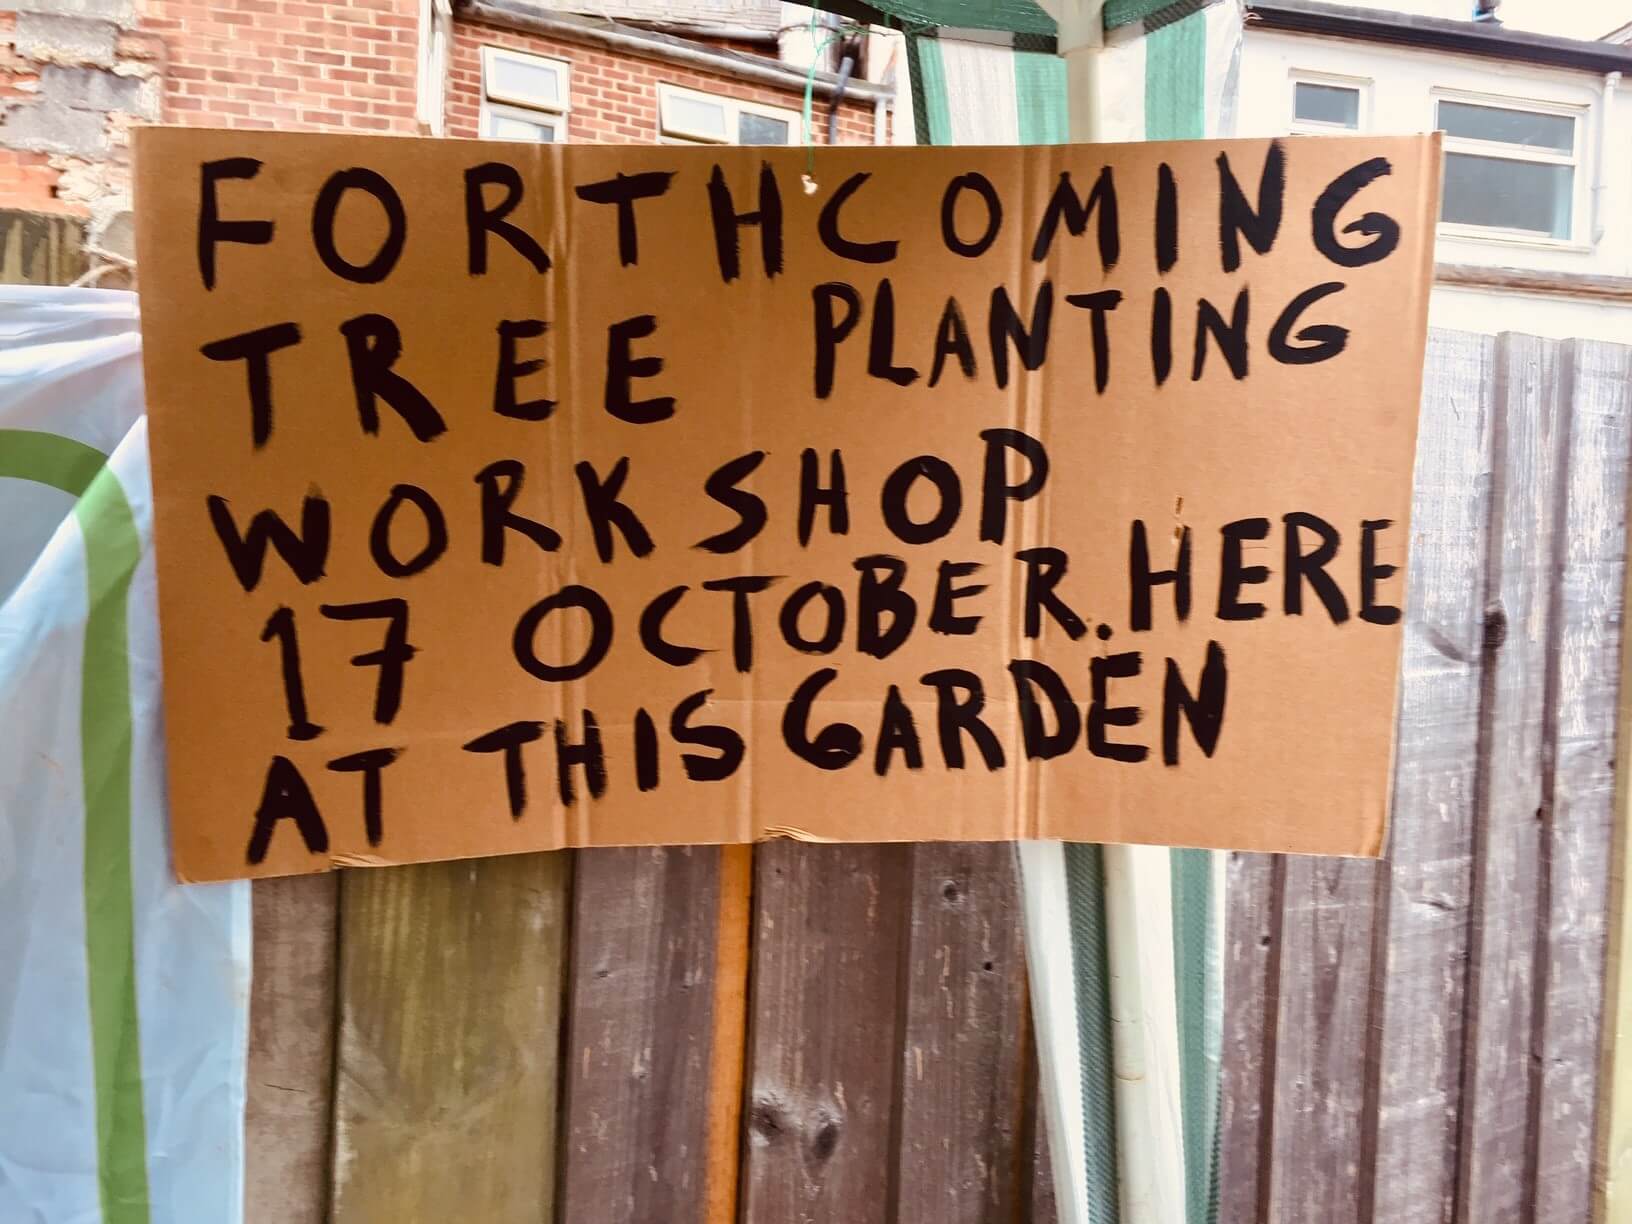 FORTHCOMING
TREE PLANTING
WORKSHOP
17 OCTOBER. HERE
AT THIS GARDEN